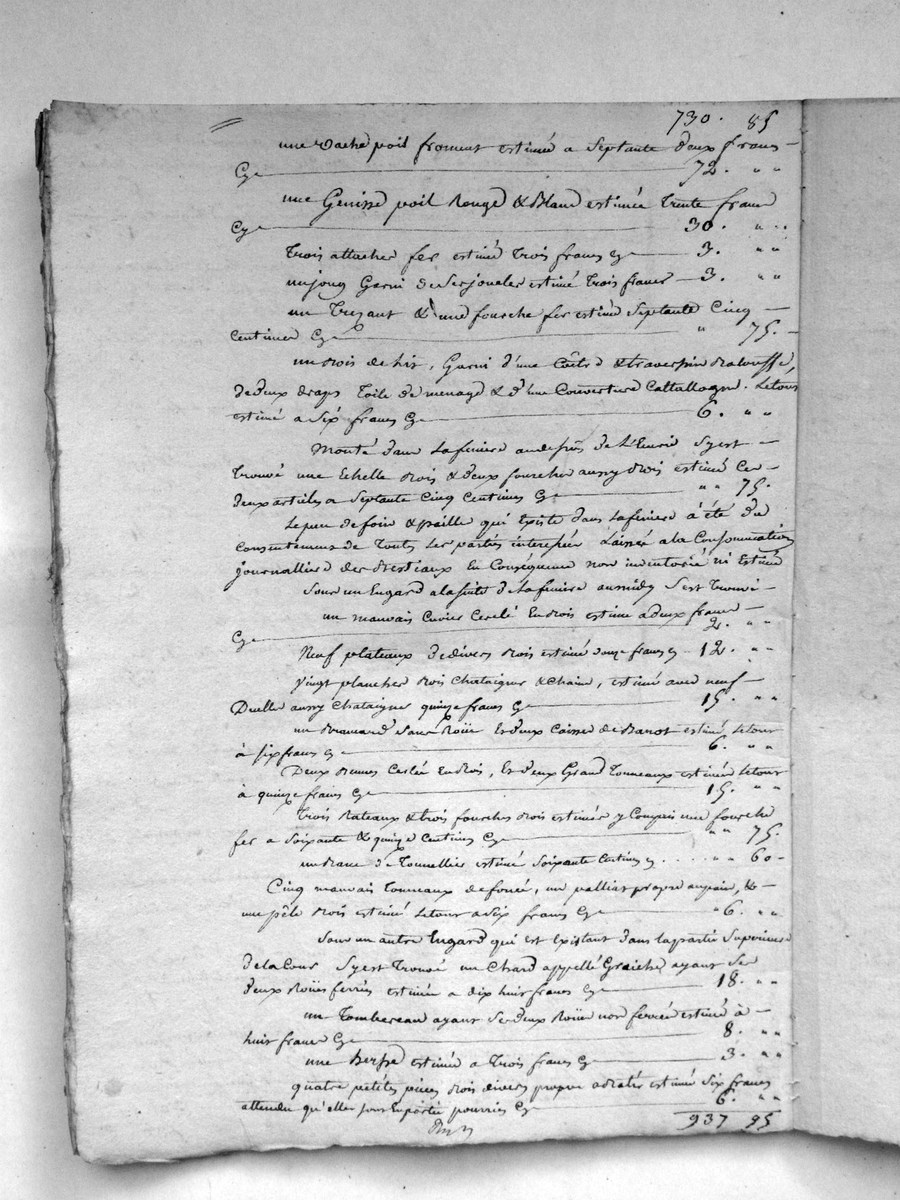 730. 85
une vache poil froment estimée a Septante deux francs —
Cy — 72. " "
une Genisse poil Rouge & Blanc estimée Trente francs
Cy — 30. " "
Trois attaches fer estimé trois francs Cy — 3. " "
un joug Garni de Ses jouclex estimé trois francs — 3. " "
un Trezant & une fourche fer estimé Septante Cinq —
Centimes Cy — " 75. —
un Bois de lit, Garni d'une Coîtr & traverpin Balouffe,
de deux draps Toile de menage & d'une Couverture Cattallogne. Letous
estimé a Six francs Cy — 6. " "
Monté dans Lafeniere audessus de L'Ecurie Syest —
Trouvé une Echelle Bois & deux fourches aussy Bois estimé Ces —
deux articles a Septante Cinq Centimes Cy — " " 75. —
Le peu de foin & paille qui Existe dans Lafeniere à été du
Consentement de Toutes Les parties interessées Laissé a la Consommation
journalliere des Bestiaux En Consequence non inventorié ni Estimé
Sous un Engard a la suite de Lafeniere au midy S'est Trouvé —
un mauvais Cuvier Cerclé En Bois estimé a deux francs —
Cy — 2. " "
Neuf plateaux de divers Bois estimé douze francs Cy — 12. " "
Vingt planches Bois Chataigner & Chaine, estimé avec neuf —
Duelles aussy Chataigner quinze francs Cy — 15. " "
un Brancard Sans Roüe Et deux Caisses de Barot estimé Letous
à six francs Cy — 6. " "
Deux Bennes Cerclée En Bois, Et deux Grand Tonneaux estimée Letous
à quinze francs Cy — 15. " "
Trois Rateaux & trois fourches Bois estimées y Compris une fourche
fer a Soixante & quinze Centimes Cy — " " 75.
un Banc de Tonnellier estimé Soixante Centimes Cy . . . . " " 60 —
Cinq mauvais Tonneaux de foncé, un palliat propre au pain, & —
une pêle Bois estimé Letous a Six francs Cy — " 6. " "
Sous un autre Engard qui est Existant dans la partie Superieure
de la Cour Syest Trouvé un Chard appellé Graiche ayant Ses
deux Roües ferrées estimée a dix huit francs Cy — 18. " "
un Tombereau ayant Ses deux Roüe non ferrée estimé à —
huit francs Cy — 8. " "
une herse estimée a Trois francs Cy — 3. " "
quatre petites pieces Bois divers propre a estimé Six francs
attendu qu'elles sont En partie pourries Cy — 6. " "
937 95